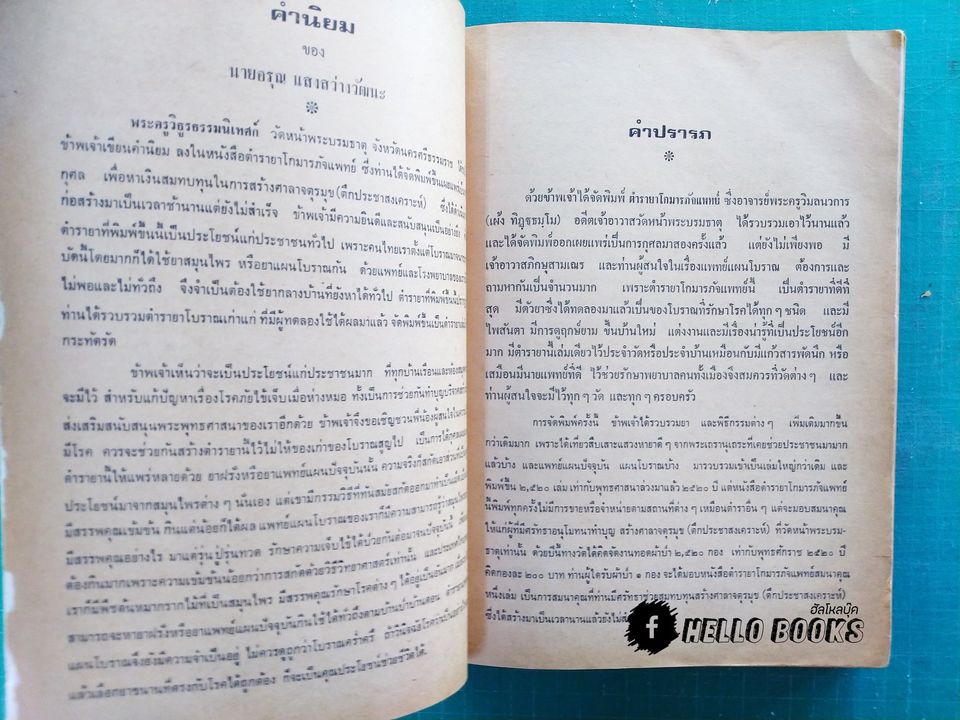 คำนิยม
ของ
นายอรุณ แสงสว่างวัฒนะ
พระครูวิธูรธรรมนิเทศก์ วัดหน้าพระบรมธาตุ จังหวัดนครศรีธรรมราช
ข้าพเจ้าเขียนคำนิยม ลงในหนังสือตำรายาโกมารภัจแพทย์ ซึ่งท่านได้จัดพิมพ์ขึ้นเผยแพร่
กุศล เพื่อหาเงินสมทบทุนในการสร้างศาลาจตุรมุข (ตึกประชาสงเคราะห์) ซึ่งได้
ก่อสร้างมาเป็นเวลาช้านานแต่ยังไม่สำเร็จ ข้าพเจ้ามีความยินดีและสนับสนุนเป็นอย่างยิ่ง
ตำรายาที่พิมพ์ขึ้นนี้เป็นประโยชน์แก่ประชาชนทั่วไป เพราะคนไทยเราตั้งแต่โบราณมาจน
บัดนี้โดยมากก็ได้ใช้ยาสมุนไพร หรือยาแผนโบราณกัน ด้วยแพทย์และโรงพยาบาล
ไม่พอและไม่ทั่วถึง จึงจำเป็นต้องใช้ยากลางบ้านที่ยังหาได้ทั่วไป ตำรายาที่พิมพ์ขึ้นนี้
ท่านได้รวบรวมตำรายาโบราณเก่าแก่ ที่มีผู้ทดลองใช้ได้ผลมาแล้ว จัดพิมพ์ขึ้นเป็นตำรายา
กระทัดรัด
ข้าพเจ้าเห็นว่าจะเป็นประโยชน์แก่ประชาชนมาก ที่ทุกบ้านเรือนและ
จะมีไว้ สำหรับแก้ปัญหาเรื่องโรคภัยไข้เจ็บเมื่อห่างหมอ ทั้งเป็นการช่วยกันทำบุญบริจาค
ส่งเสริมสนับสนุนพระพุทธศาสนาของเราอีกด้วย ข้าพเจ้าจึงขอเชิญชวนพี่น้องผู้สนใจใน
มีโรค ควรจะช่วยกันสร้างตำรายานี้ไว้ไม่ให้ของเก่าของโบราณสูญไป เป็นการได้กุศล
ตำรายานี้ให้แพร่หลายด้วย ยาฝรั่งหรือยาแพทย์แผนปัจจุบันนั้น ความจริงก็สกัดเอาส่วนที่เป็น
ประโยชน์มาจากสมุนไพรต่าง ๆ นั่นเอง แต่เขามีกรรมวิธีที่ทันสมัยสกัดออกมาทำเป็น
มีสรรพคุณเข้มข้น กินแต่น้อยก็ได้ผล แพทย์แผนโบราณของเราก็มีความสามารถรู้ว่าสมุนไพร
มีสรรพคุณอย่างไร มาแต่รุ่นปู่รุ่นทวด รักษาความเจ็บไข้ได้ป่วยกันต่อมาจนปัจจุบันนี้
ต้องกินมากเพราะความเข้มข้นน้อยกว่าการสกัดด้วยวิธีวิทยาศาสตร์เท่านั้น และประเทศไทย
เราก็มีพืชต้นหมากรากไม้ที่เป็นสมุนไพร มีสรรพคุณรักษาโรคต่าง ๆ ได้อยู่เป็นอันมาก
สามารถจะหายาฝรั่งหรือยาแพทย์แผนปัจจุบันกันใช้ได้ทั่วถึงตามบ้านป่าบ้านดอน ตำรายา
แผนโบราณจึงยังมีความจำเป็นอยู่ ไม่ควรดูถูกว่าโบราณคร่ำครึ ถ้าวินิจฉัยโรค
แล้วเลือกยาขนานที่ตรงกับโรคได้ถูกต้อง ก็จะเป็นคุณประโยชน์ช่วยชีวิตได้.
คำปรารภ
ด้วยข้าพเจ้าได้จัดพิมพ์ ตำรายาโกมารภัจแพทย์ ซึ่งอาจารย์พระครูวิมลนวการ
(เผ้ง ทิฏฺฐธมฺโม) อดีตเจ้าอาวาสวัดหน้าพระบรมธาตุ ได้รวบรวมเอาไว้นานแล้ว
และได้จัดพิมพ์ออกเผยแพร่เป็นการกุศลมาสองครั้งแล้ว แต่ยังไม่เพียงพอ มี
เจ้าอาวาสภิกษุสามเณร และท่านผู้สนใจในเรื่องแพทย์แผนโบราณ ต้องการและ
ถามหากันเป็นจำนวนมาก เพราะตำรายาโกมารภัจแพทย์นี้ เป็นตำราที่ดีที่
สุด มีตัวยาซึ่งได้ทดลองมาแล้วเป็นของโบราณที่รักษาโรคได้ทุก ๆ ชนิด และมี
ไพสันตา มีการดูฤกษ์ยาม ขึ้นบ้านใหม่ แต่งงานและมีเรื่องน่ารู้ที่เป็นประโยชน์อีก
มาก มีตำรายานี้เล่มเดียวไว้ประจำวัดหรือประจำบ้านเหมือนกับมีแก้วสารพัดนึก หรือ
เสมือนมีนายแพทย์ที่ดี ไว้ช่วยรักษาพยาบาลคนทั้งเมืองจึงสมควรที่วัดต่าง ๆ และ
ท่านผู้สนใจจะมีไว้ทุก ๆ วัด และทุก ๆ ครอบครัว
การจัดพิมพ์ครั้งนี้ ข้าพเจ้าได้รวบรวมยา และพิธีกรรมต่าง ๆ เพิ่มเติมมากขึ้น
กว่าเดิมมาก เพราะได้เที่ยวสืบเสาะแสวงหายาดี ๆ จากพระเถรานุเถระที่เคยช่วยประชาชนมามาก
แล้วบ้าง และแพทย์แผนปัจจุบัน แผนโบราณบ้าง มารวบรวมเข้าเป็นเล่มใหญ่กว่าเดิม และ
พิมพ์ขึ้น ๒,๕๒๐ เล่ม เท่ากับพุทธศาสนาล่วงมาแล้ว ๒๕๒๐ ปี แต่หนังสือตำรายาโกมารภัจแพทย์
นี้พิมพ์ทุกครั้งไม่มีการขายหรือจำหน่ายตามสถานที่ต่าง ๆ เหมือนตำราอื่น ๆ แต่จะมอบสมนาคุณ
ให้แก่ผู้ที่มีศรัทธาอนุโมทนาทำบุญ สร้างศาลาจตุรมุข (ตึกประชาสงเคราะห์) ที่วัดหน้าพระบรม-
ธาตุเท่านั้น ด้วยบันี้ทางวัดได้คิดจัดงานทอดผ้าป่า ๒,๕๒๐ กอง เท่ากับพุทธศักราช ๒๕๒๐ ปี
คิดกองละ ๒๐๐ บาท ท่านผู้ใดรับผ้าป่า ๑ กอง จะได้มอบหนังสือตำรายาโกมารภัจแพทย์สมนาคุณ
หนึ่งเล่ม เป็นการสมนาคุณที่ท่านมีศรัทธาช่วยสมทบทุนสร้างศาลาจตุรมุข (ตึกประชาสงเคราะห์)
ซึ่งได้สร้างมาเป็นเวลานานแล้วยังไม่
ฮัลโหลบุ๊ค
f HELLO BOOKS